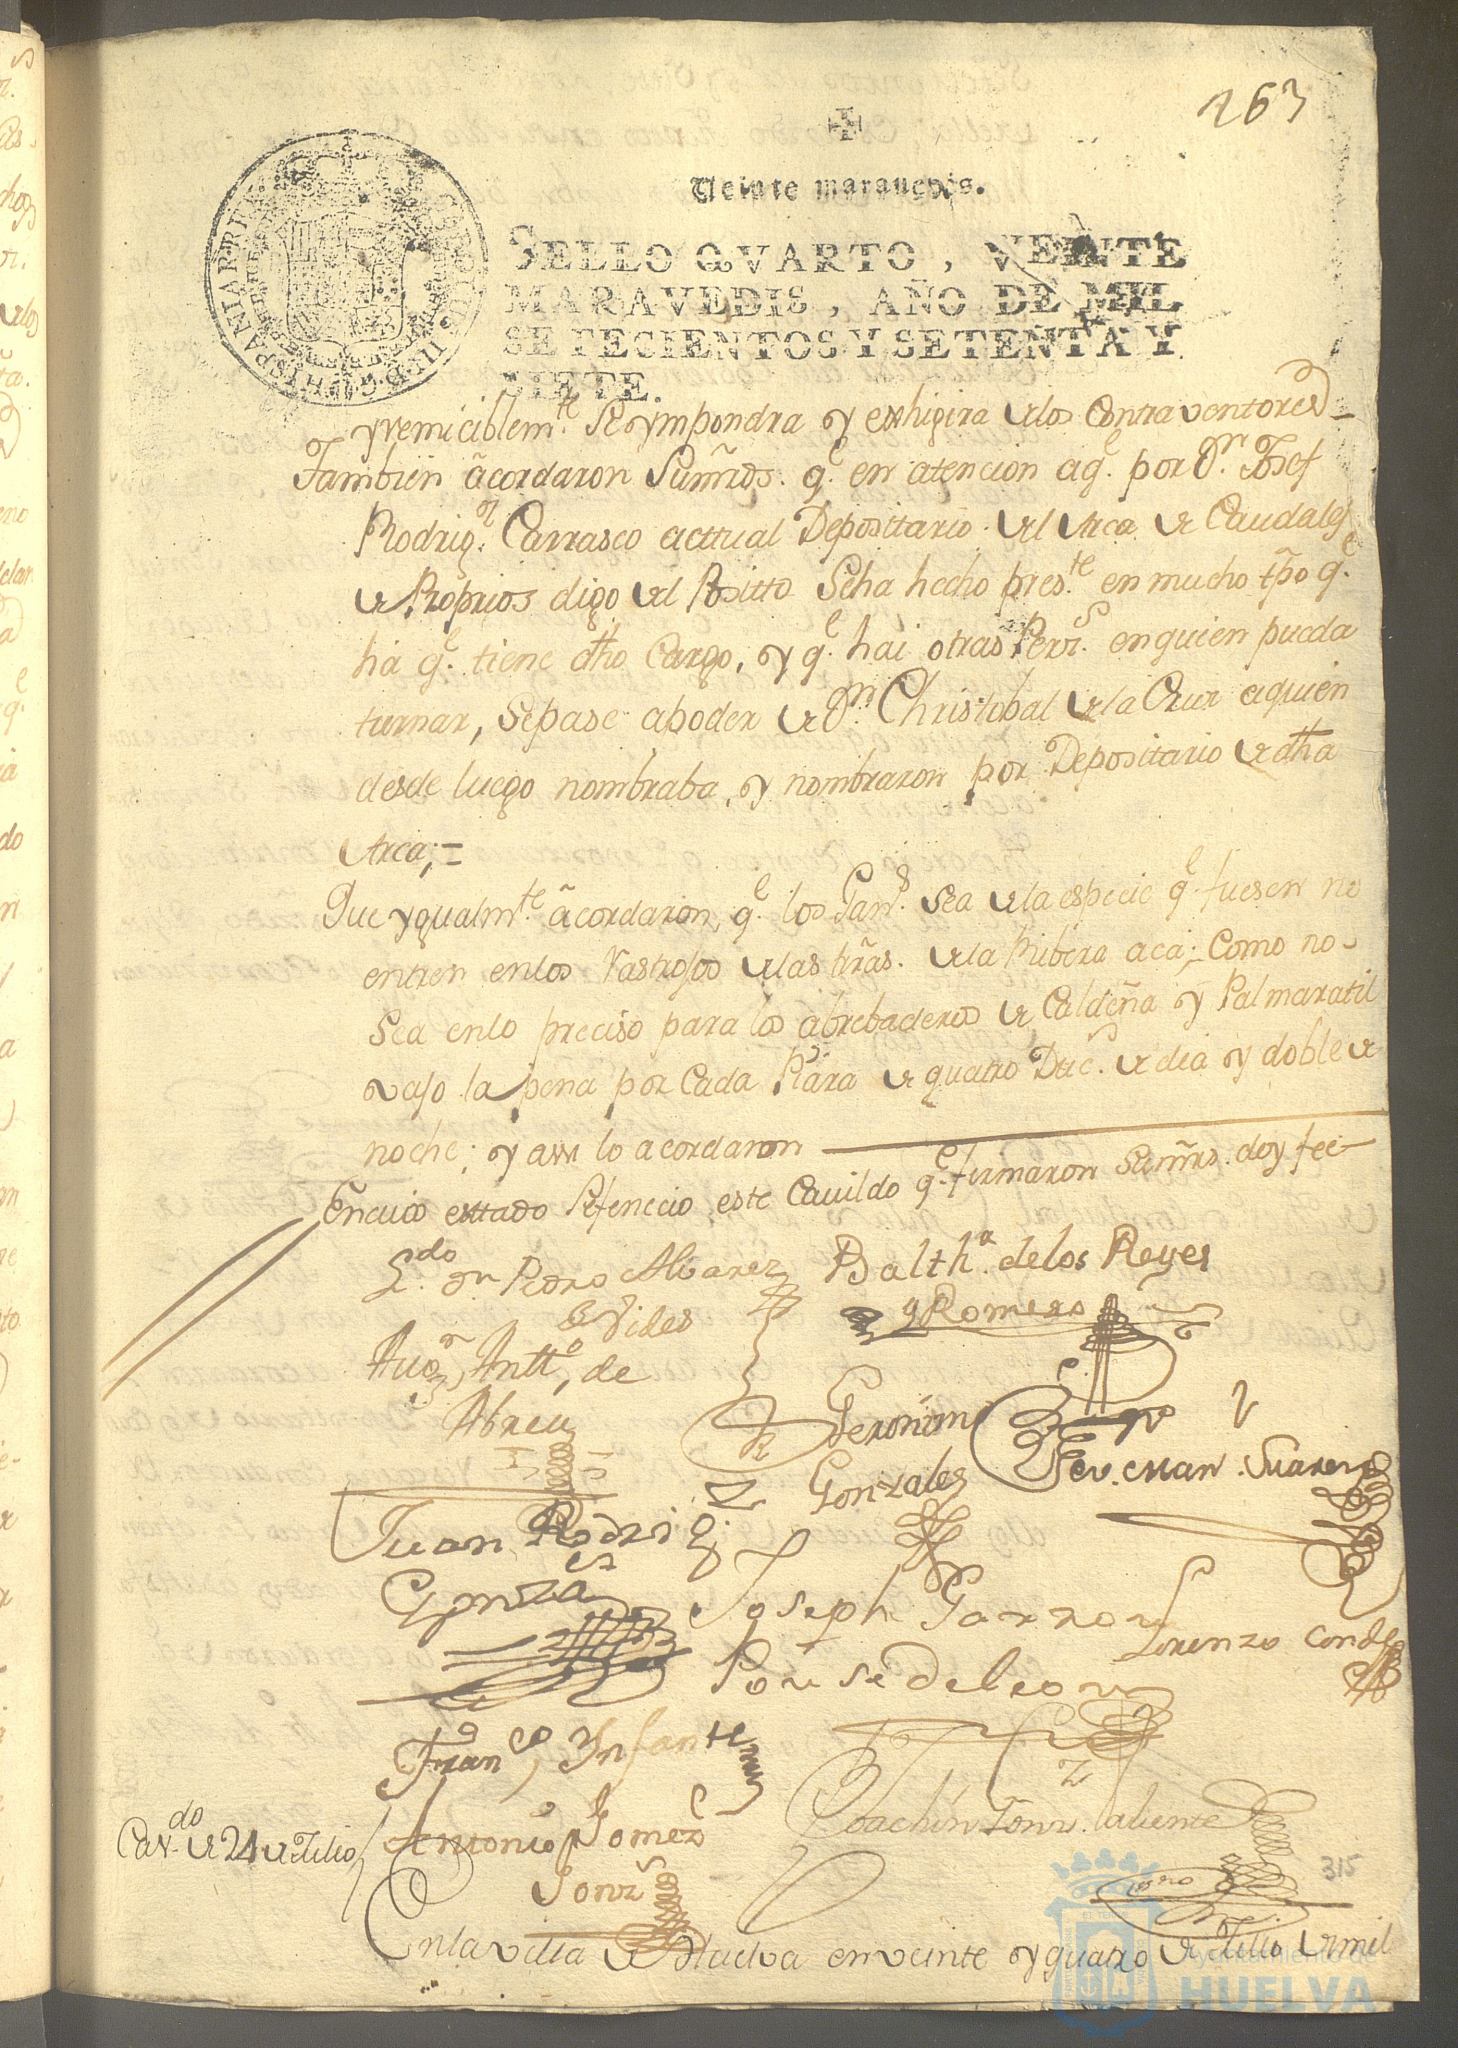 263
Veinte marauedis.
SELLO QVARTO, VEINTE
MARAVEDIS, AÑO DE MIL
SETECIENTOS Y SETENTA Y
SIETE.
yrremiciblemte. se ympondra y exhigira de los Contraventores
Tambien acordaron Sumrds. qe. en atencion a qe. por Dn. Josef
Rodrigz. Carrasco acttual Depositario del Arca de Caudales
de Proprios digo del Positto Se ha hecho preste. en mucho tpo qe.
há qe. tiene dho Cargo, y qe. hai otras Pers. en quien pueda
turnar, se pase a poder de Dn. Christobal de la Cruz a quien
desde luego nombraba, y nombraron por Depositario de dha
Arca; =
Que ygualmte. acordaron, qe. los Gans. sea de la especie qe. fuesen no
entren en los rastrojos de las tras. de la Ribera acá; Como no
sea en lo preciso para los abrebaderos de Caldeña y Palmaratil
vajo la pena por Cada Piara de quatro Ducs. de dia y doble de
noche; y assi lo acordaron
En cuio esttado se fenecio este Cavildo qe. firmaron Sumrs. doy fee
Ldo. Dn. Pedro Alvarez
Vides
Balthª. de los Reyes
y Romero
Antto. de
Abreu
Geronimo
Gonzales
Suarez
Juan Rodrigz.
Gonza
Joseph Garzon
Ponse de leon
Lorenzo Conde
Franco, Infante
Antonio Gomez
Gonz
Joachin Gonz. aliente
Cavdo. de 24 de Julio
315
En la villa de Huelva en veinte y quatro de Julio de mil
Ayuntamiento de
HUELVA